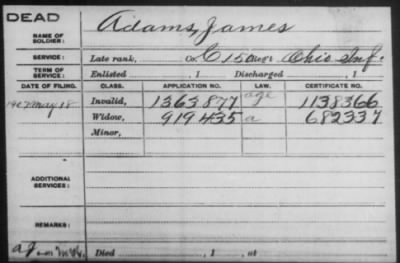 DEAD
NAME OF SOLDIER: Adams, James
SERVICE: Late rank, Co. C 150 Regt. Ohio Inf.
TERM OF SERVICE: Enlisted , 1 Discharged , 1
DATE OF FILING. CLASS. APPLICATION NO. LAW. CERTIFICATE NO.
1907 May 18 Invalid, 1363877 age 1138366
Widow, 919435 a 682337
Minor,
ADDITIONAL SERVICES:
REMARKS:
Died , 1 , at